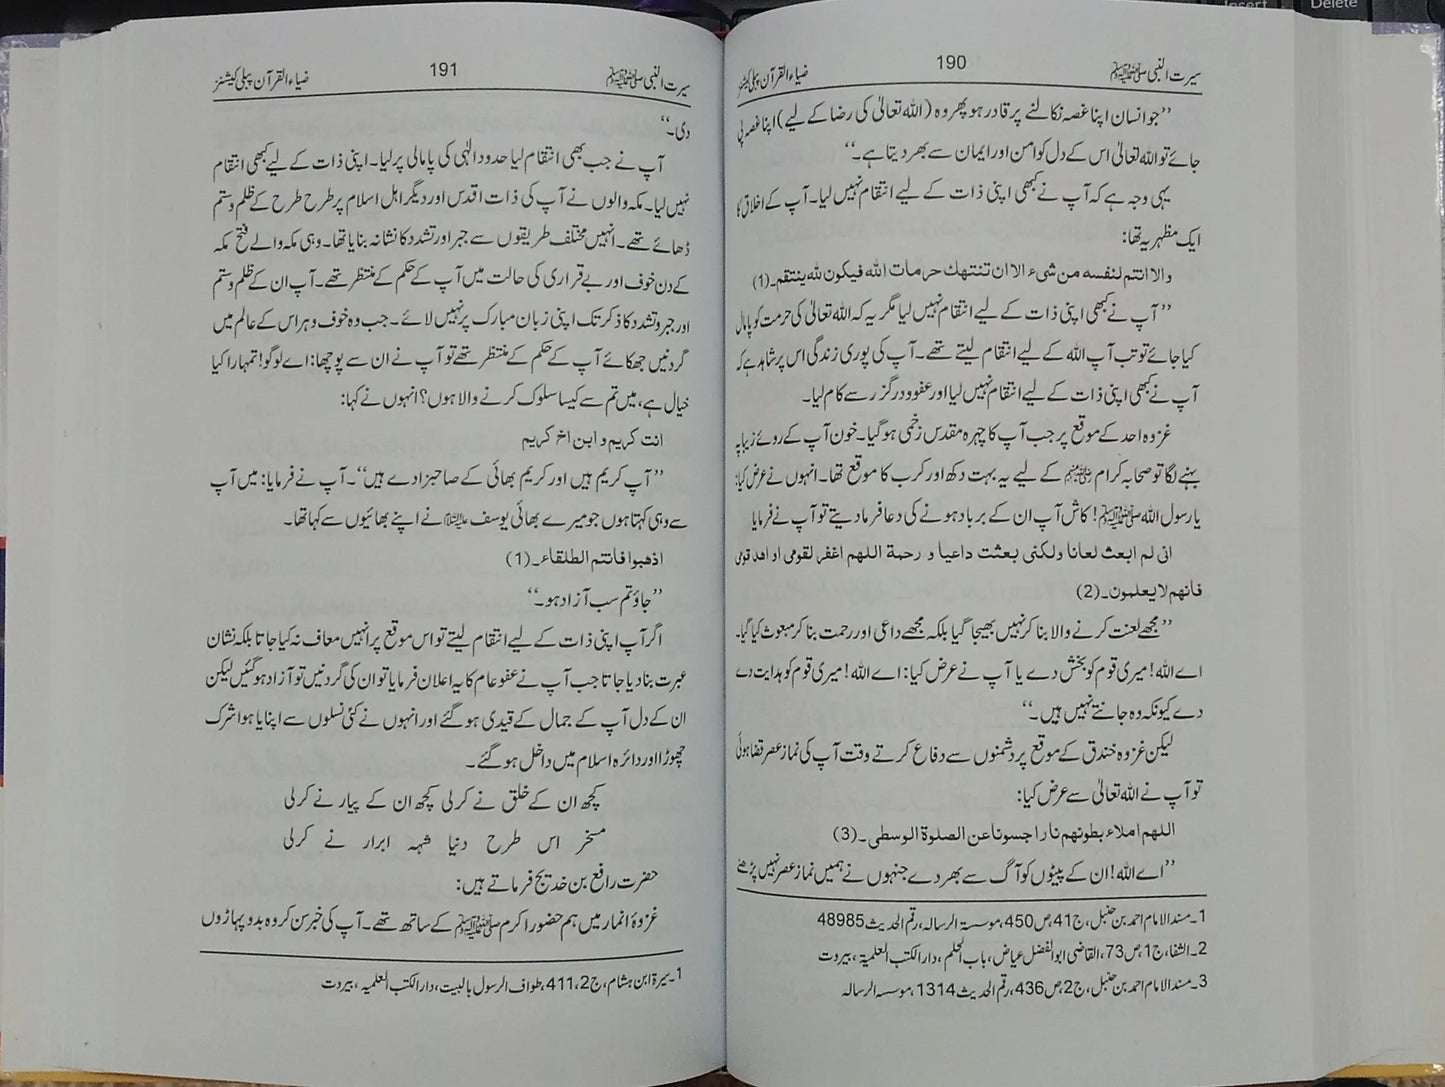 Insert
Delete
سیرت النبی ﷺ 190 ضیاء القرآن پبلی کیشنز
’’جو انسان اپنا غصہ نکالنے پر قادر ہو پھر وہ (اللہ تعالیٰ کی رضا کے لیے) اپنا غصہ پی
جائے تو اللہ تعالیٰ اس کے دل کو امن اور ایمان سے بھر دیتا ہے۔‘‘
یہی وجہ ہے کہ آپ نے کبھی اپنی ذات کے لیے انتقام نہیں لیا۔ آپ کے اخلاق کا
ایک مظہر یہ تھا:
والا انتم لنفسه من شیء الا ان تنتهك حرمات الله فیکون لله ینتقم۔(1)
’’آپ نے کبھی اپنی ذات کے لیے انتقام نہیں لیا مگر یہ کہ اللہ تعالیٰ کی حرمت کو پامال
کیا جائے تو تب آپ اللہ کے لیے انتقام لیتے تھے۔ آپ کی پوری زندگی اس پر شاہد ہے کہ
آپ نے کبھی اپنی ذات کے لیے انتقام نہیں لیا اور عفو و درگزر سے کام لیا۔
غزوہ احد کے موقع پر جب آپ کا چہرہ مقدس زخمی ہو گیا۔ خون آپ کے روئے زیبا پہ
بہنے لگا تو صحابہ کرام رضی اللہ عنہم کے لیے یہ بہت دکھ اور کرب کا موقع تھا۔ انہوں نے عرض کیا:
یا رسول اللہ ﷺ! کاش آپ ان کے برباد ہونے کی دعا فرما دیتے تو آپ نے فرمایا
انی لم ابعث لعانا ولکنی بعثت داعیا و رحمة اللهم اغفر لقومی او اهد قومی
فانهم لا یعلمون۔(2)
’’مجھے لعنت کرنے والا بنا کر نہیں بھیجا گیا بلکہ مجھے داعی اور رحمت بنا کر مبعوث کیا گیا۔
اے اللہ! میری قوم کو بخش دے یا آپ نے عرض کیا: اے اللہ! میری قوم کو ہدایت دے
دے کیونکہ وہ جانتے نہیں ہیں۔‘‘
لیکن غزوہ خندق کے موقع پر دشمنوں سے دفاع کرتے وقت آپ کی نماز عصر قضا ہوئی
تو آپ نے اللہ تعالیٰ سے عرض کیا:
اللهم املاء بطونهم نارا حسونا عن الصلوة الوسطی۔(3)
’’اے اللہ! ان کے پیٹوں کو آگ سے بھر دے جنہوں نے ہمیں نماز عصر نہیں پڑھنے
1۔مسند الامام احمد بن حنبل، ج41، ص450، موسسۃ الرسالہ، رقم الحدیث48985
2۔الشفا، ج1، ص73، القاضی ابو الفضل عیاض، باب الحلم، دار الکتب العلمیۃ، بیروت
3۔مسند الامام احمد بن حنبل، ج2، ص436، رقم الحدیث1314، موسسہ الرسالہ
سیرت النبی ﷺ 191 ضیاء القرآن پبلی کیشنز
دی۔‘‘
آپ نے جب بھی انتقام لیا حدود الٰہی کی پامالی پر لیا۔ اپنی ذات کے لیے کبھی انتقام
نہیں لیا۔ مکہ والوں نے آپ کی ذات اقدس اور دیگر اہل اسلام پر طرح طرح کے ظلم و ستم
ڈھائے تھے۔ انہیں مختلف طریقوں سے جبر اور تشدد کا نشانہ بنایا تھا۔ وہی مکہ والے فتح مکہ
کے دن خوف اور بے قراری کی حالت میں آپ کے حکم کے منتظر تھے۔ آپ ان کے ظلم و ستم
اور جبر و تشدد کا ذکر تک اپنی زبان مبارک پر نہیں لائے۔ جب وہ خوف و ہراس کے عالم میں
گردنیں جھکائے آپ کے حکم کے منتظر تھے تو آپ نے ان سے پوچھا: اے لوگو! تمہارا کیا
خیال ہے، میں تم سے کیسا سلوک کرنے والا ہوں؟ انہوں نے کہا:
انت کریم و ابن اخ کریم
’’آپ کریم ہیں اور کریم بھائی کے صاحبزادے ہیں‘‘۔ آپ نے فرمایا: میں آپ
سے وہی کہتا ہوں جو میرے بھائی یوسف علیہ السلام نے اپنے بھائیوں سے کہا تھا۔
اذهبوا فانتم الطلقاء۔(1)
’’جاؤ تم سب آزاد ہو۔‘‘
اگر آپ اپنی ذات کے لیے انتقام لیتے تو اس موقع پر انہیں معاف نہ کیا جاتا بلکہ نشان
عبرت بنا دیا جاتا جب آپ نے عفو عام کا یہ اعلان فرمایا تو ان کی گردنیں تو آزاد ہو گئیں لیکن
ان کے دل آپ کے جمال کے قیدی ہو گئے اور انہوں نے کئی نسلوں سے اپنایا ہوا شرک
چھوڑا اور دائرہ اسلام میں داخل ہو گئے۔
کچھ ان کے خلق نے کر لی کچھ ان کے پیار نے کر لی
مسخر اس طرح دنیا شہہ ابرار نے کر لی
حضرت رافع بن خدیج فرماتے ہیں:
غزوۂ انمار میں ہم حضور اکرم ﷺ کے ساتھ تھے۔ آپ کی خبر سن کر وہ بدو پہاڑوں
1۔سیرۃ ابن ہشام، ج2، 411، طواف الرسول بالبیت، دار الکتب العلمیہ، بیروت